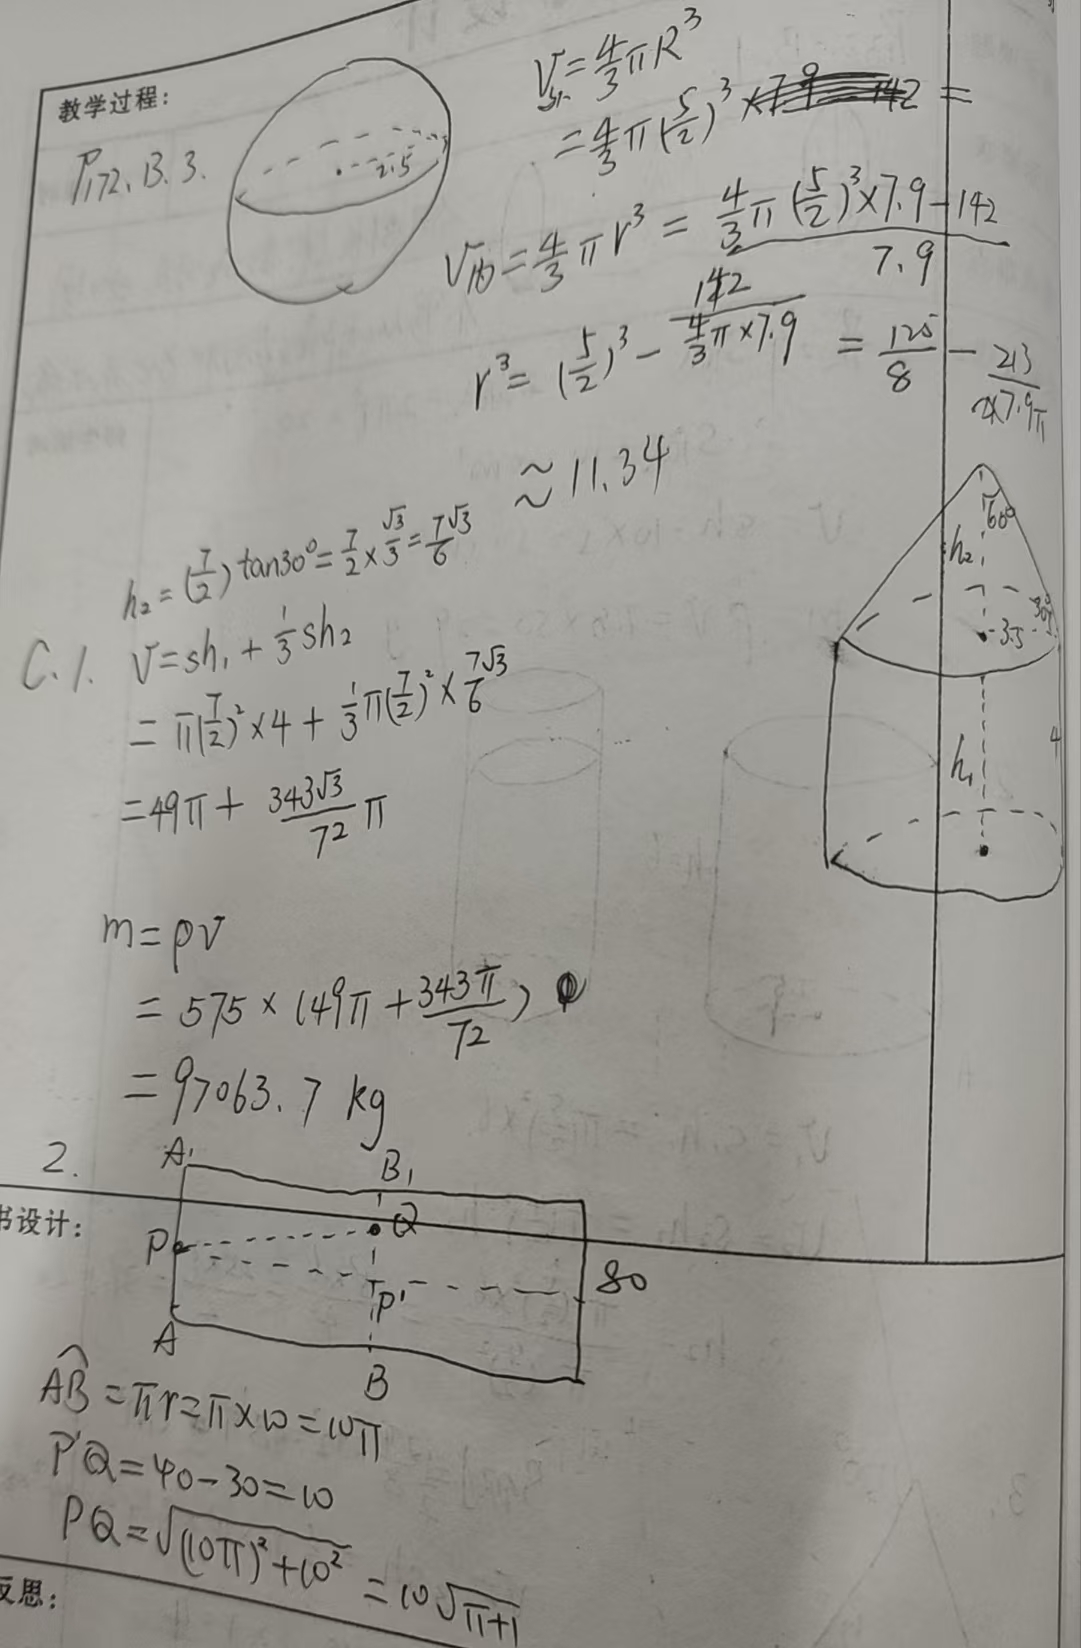 教学过程:
P172. B.3.
2.5
V外 = 4/3 πR³
= 4/3 π(5/2)³ =
V内 = 4/3 πr³ = (4/3 π (5/2)³ × 7.9 - 142) / 7.9
r³ = (5/2)³ - 142 / (4/3 π × 7.9) = 125/8 - 213 / (2×7.9π)
≈ 11.34
60°
h₂
30°
3.5
h₁
4
h₂ = (7/2) tan30° = 7/2 × √3/3 = 7√3/6
C.1. V = sh₁ + 1/3 sh₂
= π(7/2)² × 4 + 1/3 π(7/2)² × 7√3/6
= 49π + 343√3/72 π
m = ρV
= 575 × (49π + 343π/72)
= 97063.7 kg
2.
A₁ B₁
书设计:
P Q
P' 80
A B
AB = πr = π×10 = 10π
P'Q = 40 - 30 = 10
PQ = √((10π)² + 10²) = 10√(π+1)
反思: